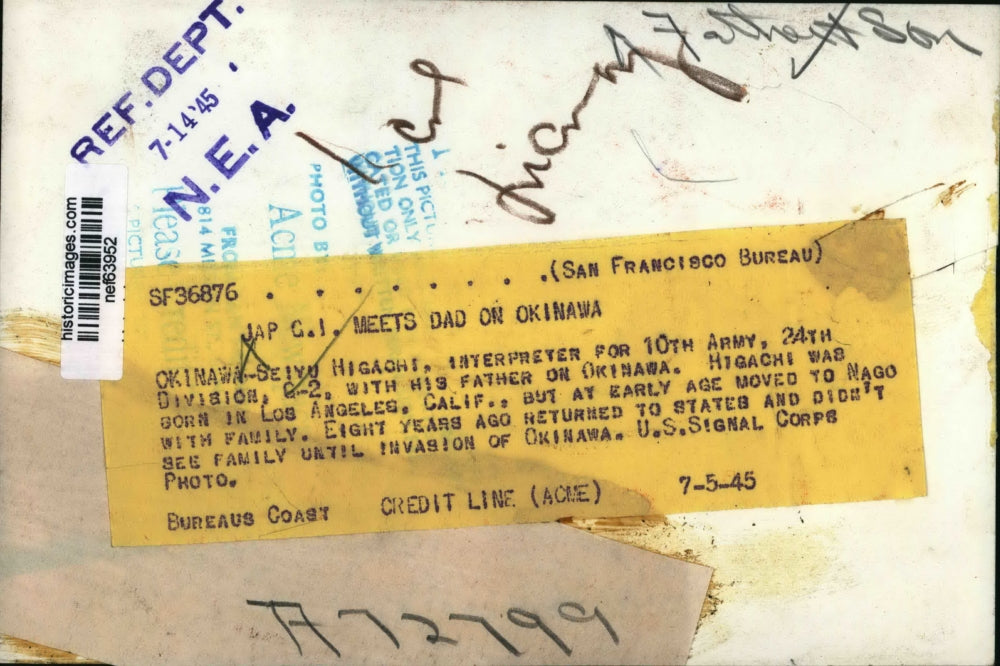 REF. DEPT.
7-14'45
N. E. A.
Father & Son
historicimages.com
nef63952
THIS PICT
TION ONLY
OR
WITHOUT
PHOTO B
FRO
814 M
PICTU
SF36876 . . . . . . . .(SAN FRANCISCO BUREAU)
JAP G.I. MEETS DAD ON OKINAWA
OKINAWA-SEIYU HIGACHI, INTERPRETER FOR 10TH ARMY, 24TH
DIVISION, G-2, WITH HIS FATHER ON OKINAWA. HIGACHI WAS
BORN IN LOS ANGELES, CALIF., BUT AT EARLY AGE MOVED TO NAGO
WITH FAMILY. EIGHT YEARS AGO RETURNED TO STATES AND DIDN'T
SEE FAMILY UNTIL INVASION OF OKINAWA. U.S.SIGNAL CORPS
PHOTO.
BUREAUS COAST CREDIT LINE (ACME) 7-5-45
A72799